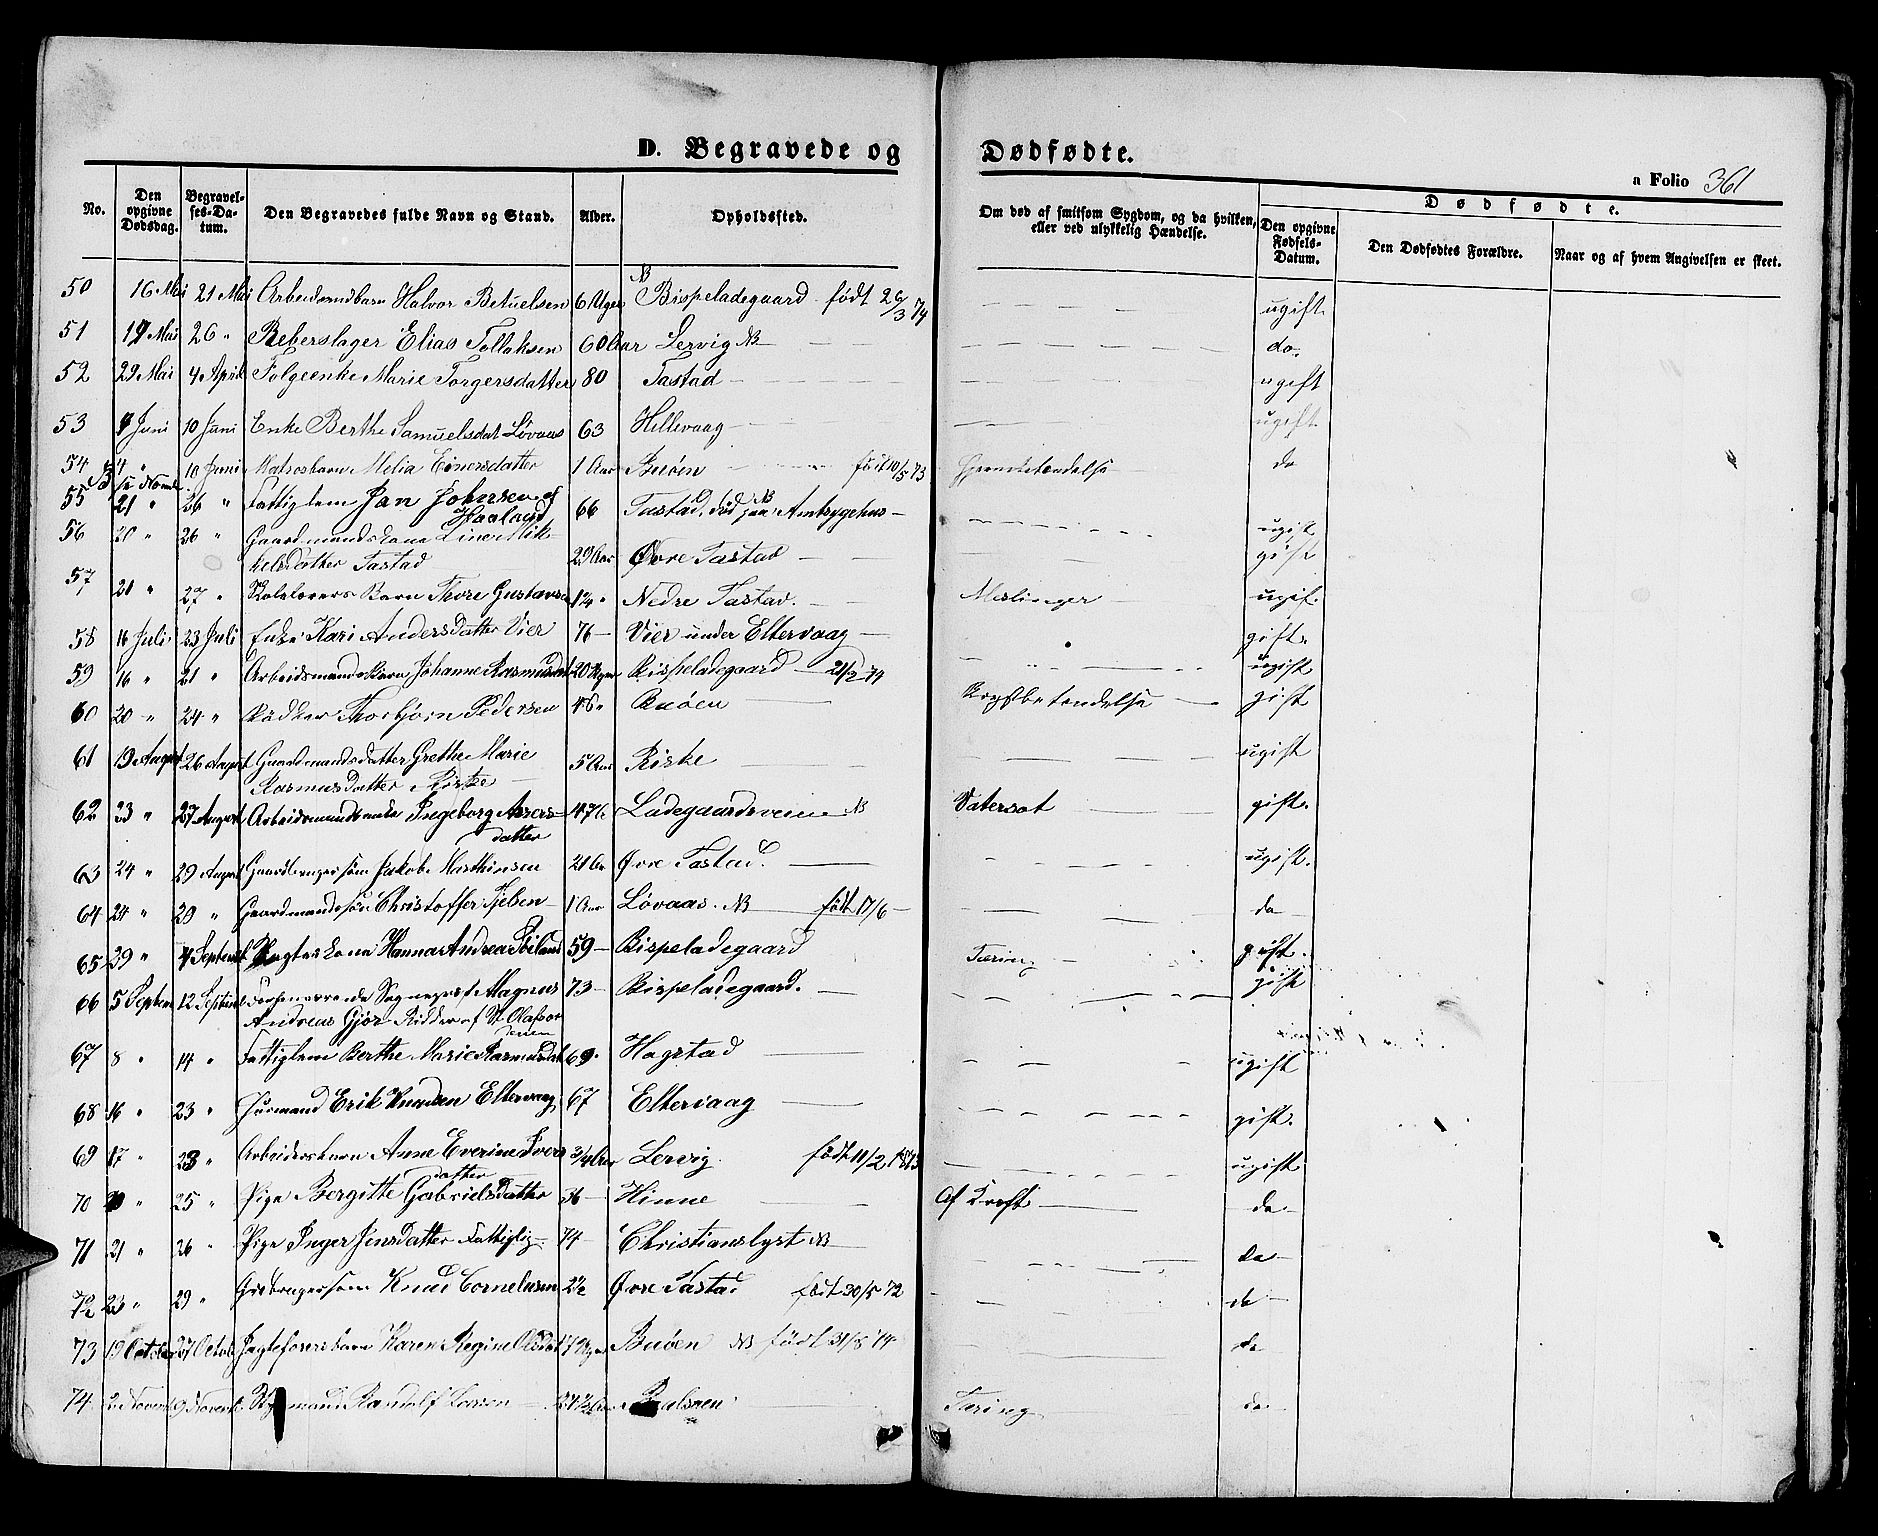 D. Begravede og Dødfødte.
a Folio 361
Dødfødte.
No. Den opgivne Dødsdag. Begravelses-Datum. Den Begravedes fulde Navn og Stand. Alder. Opholdssted. Om død af smitsom Sygdom, og da hvilken, eller ved ulykkelig Hændelse. Den opgivne Fødsels-Datum. Den Dødfødtes Forældre. Naar og af hvem Angivelsen er skeet.
50 16 Mai 21 Mai Halvor Betuelsen 6 Uger NB Bispeladegaard født 26/3 74 ugift
51 19 Mai 26 " Reberslager Elias Tollaksen 60 Aar Lervig NB do.
52 29 Mai 4 April Folgeenke Marie Torgersdatter 80 Tastad ugift
53 Juni 10 Juni Enke Berthe Samuelsdat Løvaas 63 Hillevaag ugift
54 4 " 10 Juni Matrosbarn Melia Einersdatter 1 Aar Buøen født 10/5 73 do
55 21 " 26 " Fattiglem Jan Johnsen af Haaland 66 Tastad, død paa Amtsygehus NB ugift
56 20 " 26 " Gaardmandskone Line Mikkelsdatter Tastad 29 Aar Øvre Tastad gift
57 21 " 27 " Barn Thore Gustavsen Nedre Tastad. Meslinger ugif.
58 16 Juli 23 Juli Enke Kari Andersdatter Vier 76 Vier under Eltervaag gift
59 16 " 21 " Arbeidsmands Barn Johanne Rasmusdat 20 Uger Bispeladegaard 21/2 74 ugift
60 20 " 24 " Bødker Thorbjørn Pedersen Buøen Brystbetendelse gift
61 19 August 26 August Gaardmandsdatter Grethe Marie Rasmusdatter Riske 5 Aar Riske ugift
62 23 " 27 August Arbeidsmandsenke Ingeborg Assersdatter Ladegaardsveien NB Vatersot gift.
63 24 " 29 August Jakob Marthinsen 21 Aar Øvre Tastad. ugift.
64 24 " 29 " Gaardmandssøn Christoffer Tjelsen 1 Aar Løvaas. NB født 17/6 do
65 29 " 4 September Hanna Andrea 59 Bispeladegaard Tæring gift.
66 5 Septem 12 September Forhenværende Sogneprest Magnus Andreas Gjør Ridder af St Olafsordenen 73 Bispeladegaard. gift
67 8 " 14 " Fattiglem Berthe Marie Rasmusdat 69 Hogstad ugift
68 16 " 23 " Huusmand Erik Knudsen Eltervaag 67 Eltervaag gift.
69 17 " 23 " Arbeidersbarn Anne Everine Iversdatter 3/4 Aar Lervig. født 11/2 1873 ugift
70 20 " 25 " Pige Bergitte Gabrielsdatter 36 Hinne Af Kreft do
71 21 " 26 " Pige Inger Jensdatter Fattiglig 74 Christianslyst NB do
72 23 " 29 " Knud Cornelusen 2 1/2 Øvre Tastad født 30/5 72 do
73 19 October 27 Octob. Jagteforersbarn Karen Regine Olsdat 7 Uger Buøen NB født 31/8 74 do
74 2 Novemb 9 Novemb. Randolf Larsen Tæring do